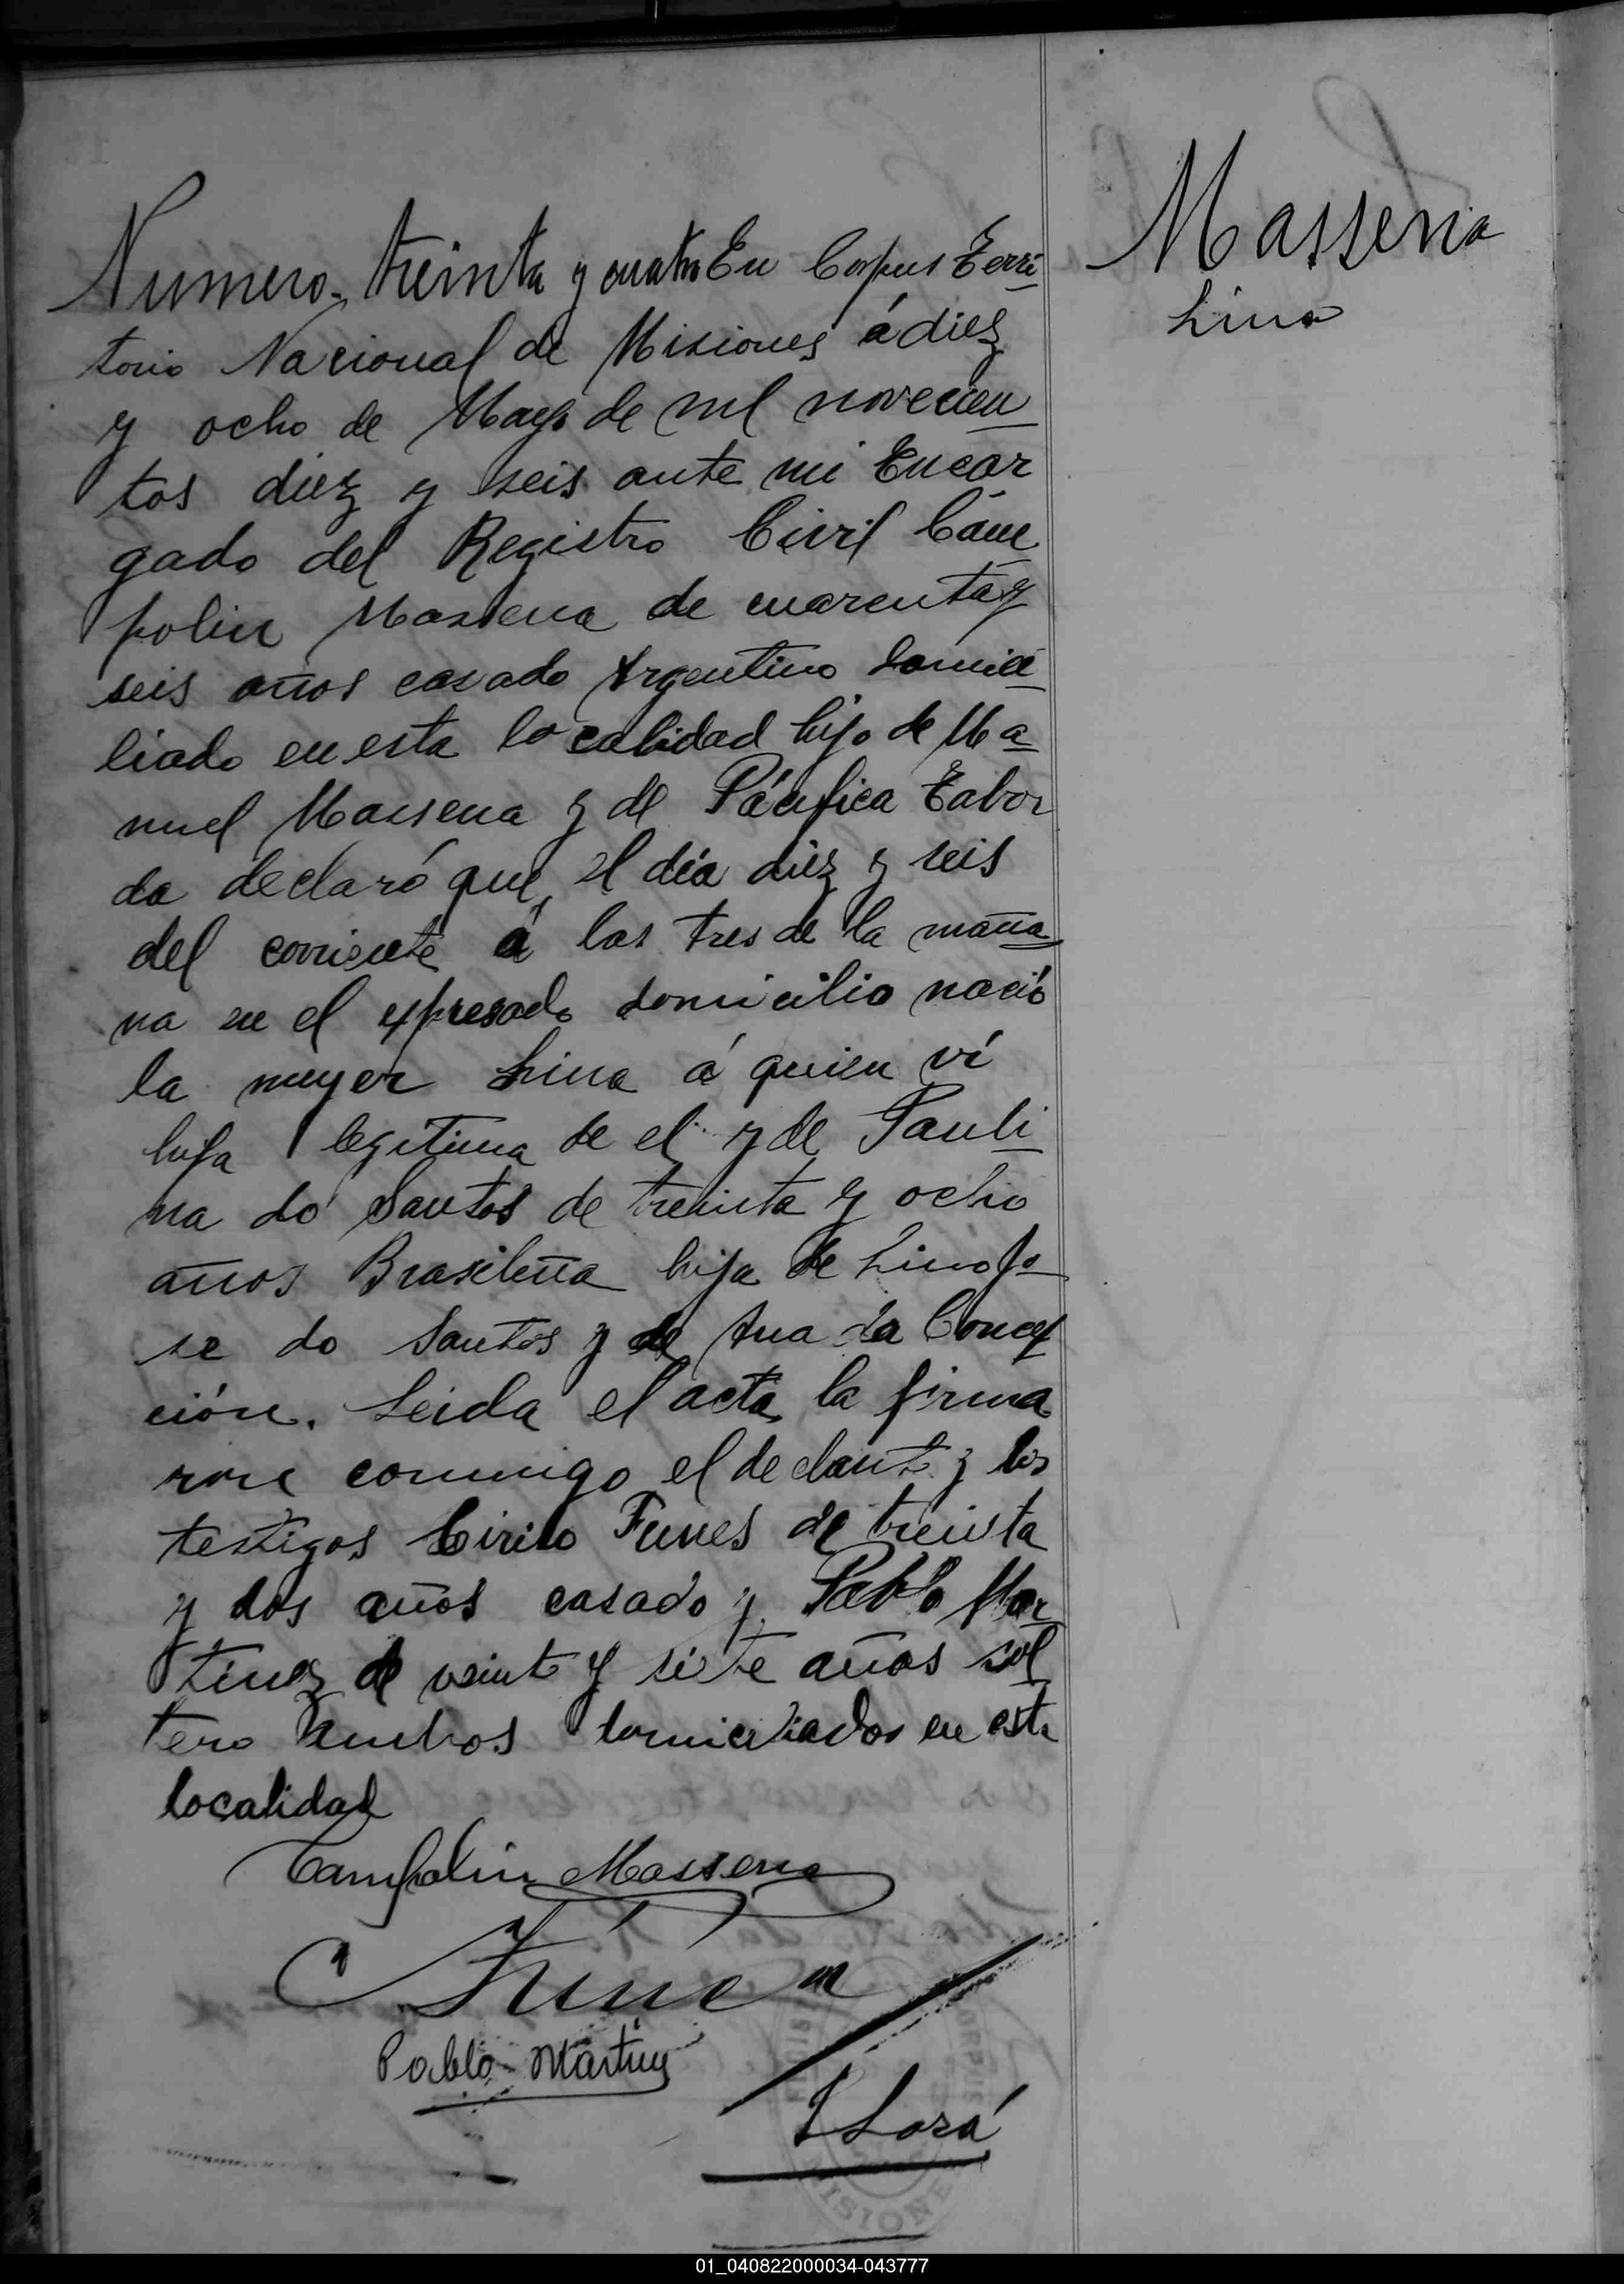 Massena
Lina
Numero. treinta y cuatro En Corpus Terri
torio Nacional de Misiones á diez
y ocho de Mayo de mil novecien
tos diez y seis ante mi Encar
gado del Registro Civil Cam
polin Massena de cuarenta y
seis años casado Argentino domici
liado en esta localidad hijo de Ma
nuel Massena y de Pácifica Tabor
da declaró que, el día diez y seis
del corriente á las tres de la maña
na en el expresado domicilio nació
la muyer Lina á quien ví
hija legitima de el y de Pauli
na do Santos de treinta y ocho
años Brasileña hija de Lino Jo
se do Santos y de Ana da Concep
ción. Leida el acta la firma
ron conmigo el declant y los
testigos Cirilo Funes de treinta
y dos años casado y Pablo Mar
tinez de veinte y siete años sol
tero Ambos domiciliados en esta
localidad
Campolin Massena
C Funes
Pablo Martinez
MISIONE
01_040822000034-043777